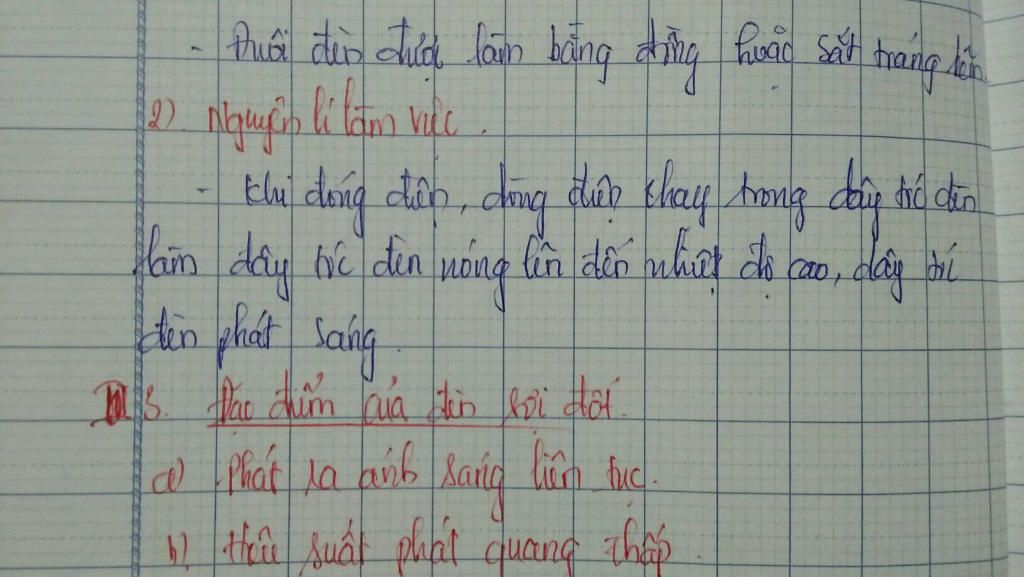 - Đuôi đèn được làm bằng đồng hoặc sắt tráng kẽm
2) Nguyên lí làm việc.
- Khi đóng điện, dòng điện chạy trong dây tóc đèn
làm dây tóc đèn nóng lên đến nhiệt độ cao, dây tóc
đèn phát sáng.
3. Đặc điểm của đèn sợi đốt.
a) Phát ra ánh sáng liên tục.
b) Hiệu suất phát quang thấp.